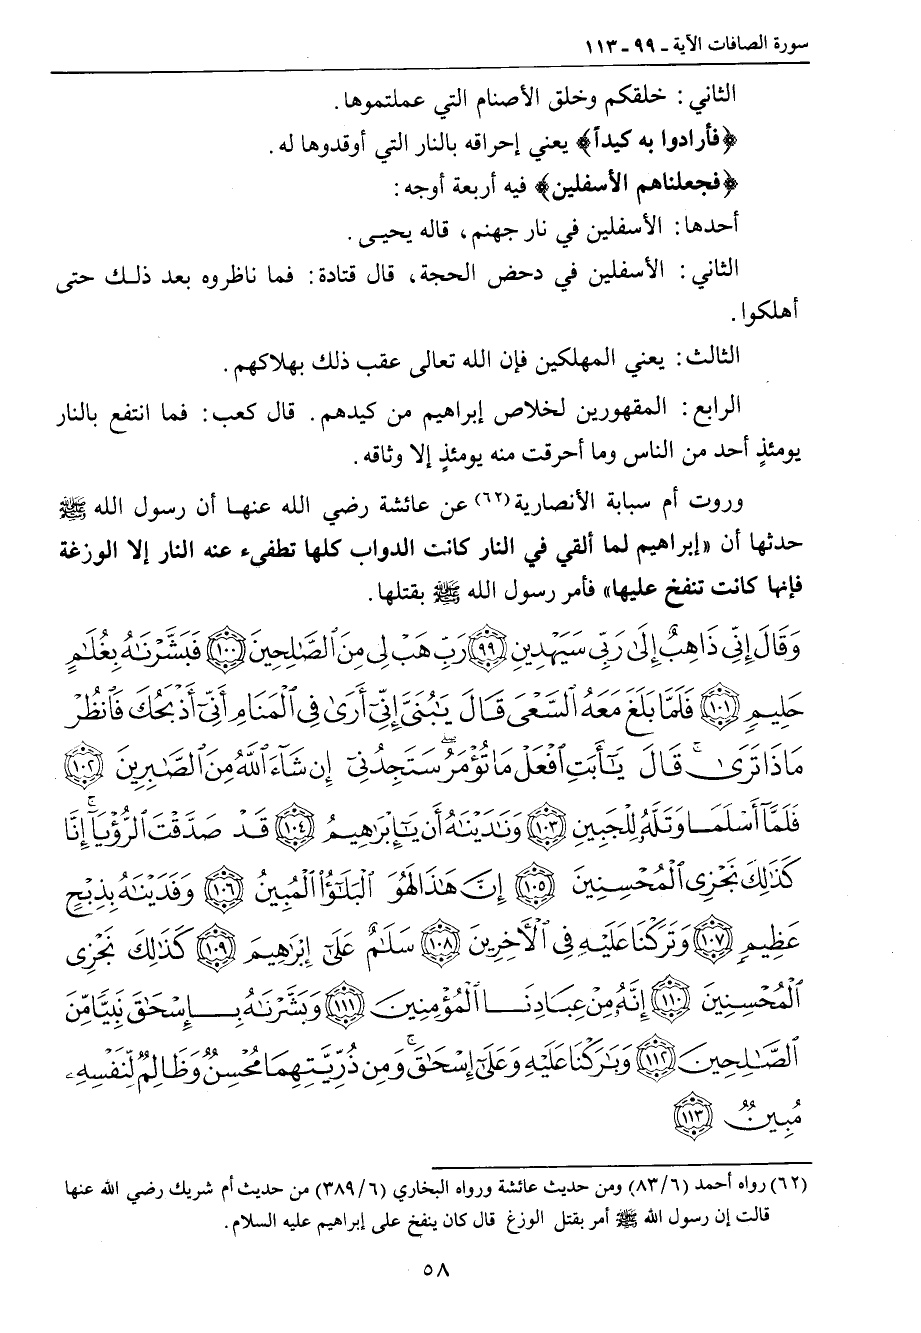 سورة الصافات الآية ـ ٩٩ ـ ١١٣
الثاني: خلقكم وخلق الأصنام التي عملتموها.
﴿فأرادوا به كيداً﴾ يعني إحراقه بالنار التي أوقدوها له.
﴿فجعلناهم الأسفلين﴾ فيه أربعة أوجه:
أحدها: الأسفلين في نار جهنم، قاله يحيى.
الثاني: الأسفلين في دحض الحجة، قال قتادة: فما ناظروه بعد ذلك حتى
أهلكوا.
الثالث: يعني المهلكين فإن الله تعالى عقب ذلك بهلاكهم.
الرابع: المقهورين لخلاص إبراهيم من كيدهم. قال كعب: فما انتفع بالنار
يومئذٍ أحد من الناس وما أحرقت منه يومئذٍ إلا وثاقه.
وروت أم سبابة الأنصارية(٦٢) عن عائشة رضي الله عنها أن رسول الله ﷺ
حدثها أن «إبراهيم لما ألقي في النار كانت الدواب كلها تطفىء عنه النار إلا الوزغة
فإنها كانت تنفخ عليها» فأمر رسول الله ﷺ بقتلها.
وَقَالَ إِنِّي ذَاهِبٌ إِلَىٰ رَبِّي سَيَهْدِينِ ٩٩ رَبِّ هَبْ لِي مِنَ ٱلصَّٰلِحِينَ ١٠٠ فَبَشَّرْنَٰهُ بِغُلَٰمٍ
حَلِيمٍ ١٠١ فَلَمَّا بَلَغَ مَعَهُ ٱلسَّعْىَ قَالَ يَٰبُنَىَّ إِنِّىٓ أَرَىٰ فِى ٱلْمَنَامِ أَنِّىٓ أَذْبَحُكَ فَٱنظُرْ
مَاذَا تَرَىٰ ۚ قَالَ يَٰٓأَبَتِ ٱفْعَلْ مَا تُؤْمَرُ ۖ سَتَجِدُنِىٓ إِن شَآءَ ٱللَّهُ مِنَ ٱلصَّٰبِرِينَ ١٠٢
فَلَمَّآ أَسْلَمَا وَتَلَّهُۥ لِلْجَبِينِ ١٠٣ وَنَٰدَيْنَٰهُ أَن يَٰٓإِبْرَٰهِيمُ ١٠٤ قَدْ صَدَّقْتَ ٱلرُّءْيَآ ۚ إِنَّا
كَذَٰلِكَ نَجْزِى ٱلْمُحْسِنِينَ ١٠٥ إِنَّ هَٰذَا لَهُوَ ٱلْبَلَٰٓؤُا۟ ٱلْمُبِينُ ١٠٦ وَفَدَيْنَٰهُ بِذِبْحٍ
عَظِيمٍ ١٠٧ وَتَرَكْنَا عَلَيْهِ فِى ٱلْءَاخِرِينَ ١٠٨ سَلَٰمٌ عَلَىٰٓ إِبْرَٰهِيمَ ١٠٩ كَذَٰلِكَ نَجْزِى
ٱلْمُحْسِنِينَ ١١٠ إِنَّهُۥ مِنْ عِبَادِنَا ٱلْمُؤْمِنِينَ ١١١ وَبَشَّرْنَٰهُ بِإِسْحَٰقَ نَبِيًّا مِّنَ
ٱلصَّٰلِحِينَ ١١٢ وَبَٰرَكْنَا عَلَيْهِ وَعَلَىٰٓ إِسْحَٰقَ ۚ وَمِن ذُرِّيَّتِهِمَا مُحْسِنٌ وَظَالِمٌ لِّنَفْسِهِۦ
مُبِينٌ ١١٣
(٦٢) رواه أحمد (٨٣/٦) ومن حديث عائشة ورواه البخاري (٣٨٩/٦) من حديث أم شريك رضي الله عنها
قالت إن رسول الله ﷺ أمر بقتل الوزغ قال كان ينفخ على إبراهيم عليه السلام.
٥٨